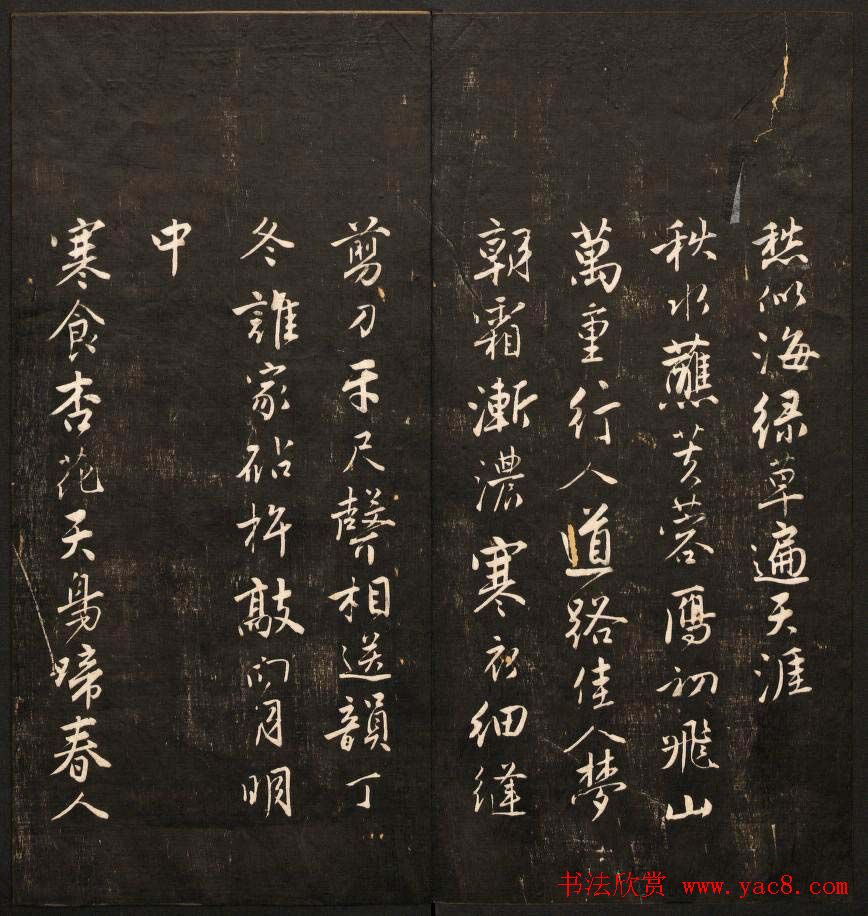 愁似海绿草遍天涯
秋水蘸芙蓉鴈初飛山
萬重行人道路佳人夢
朝霜漸濃寒衣細縫
剪刀牙尺聲相送韻丁
冬誰家砧杵敲向月明
中
寒食杏花天鳥啼春人
书法欣赏 www.yac8.com